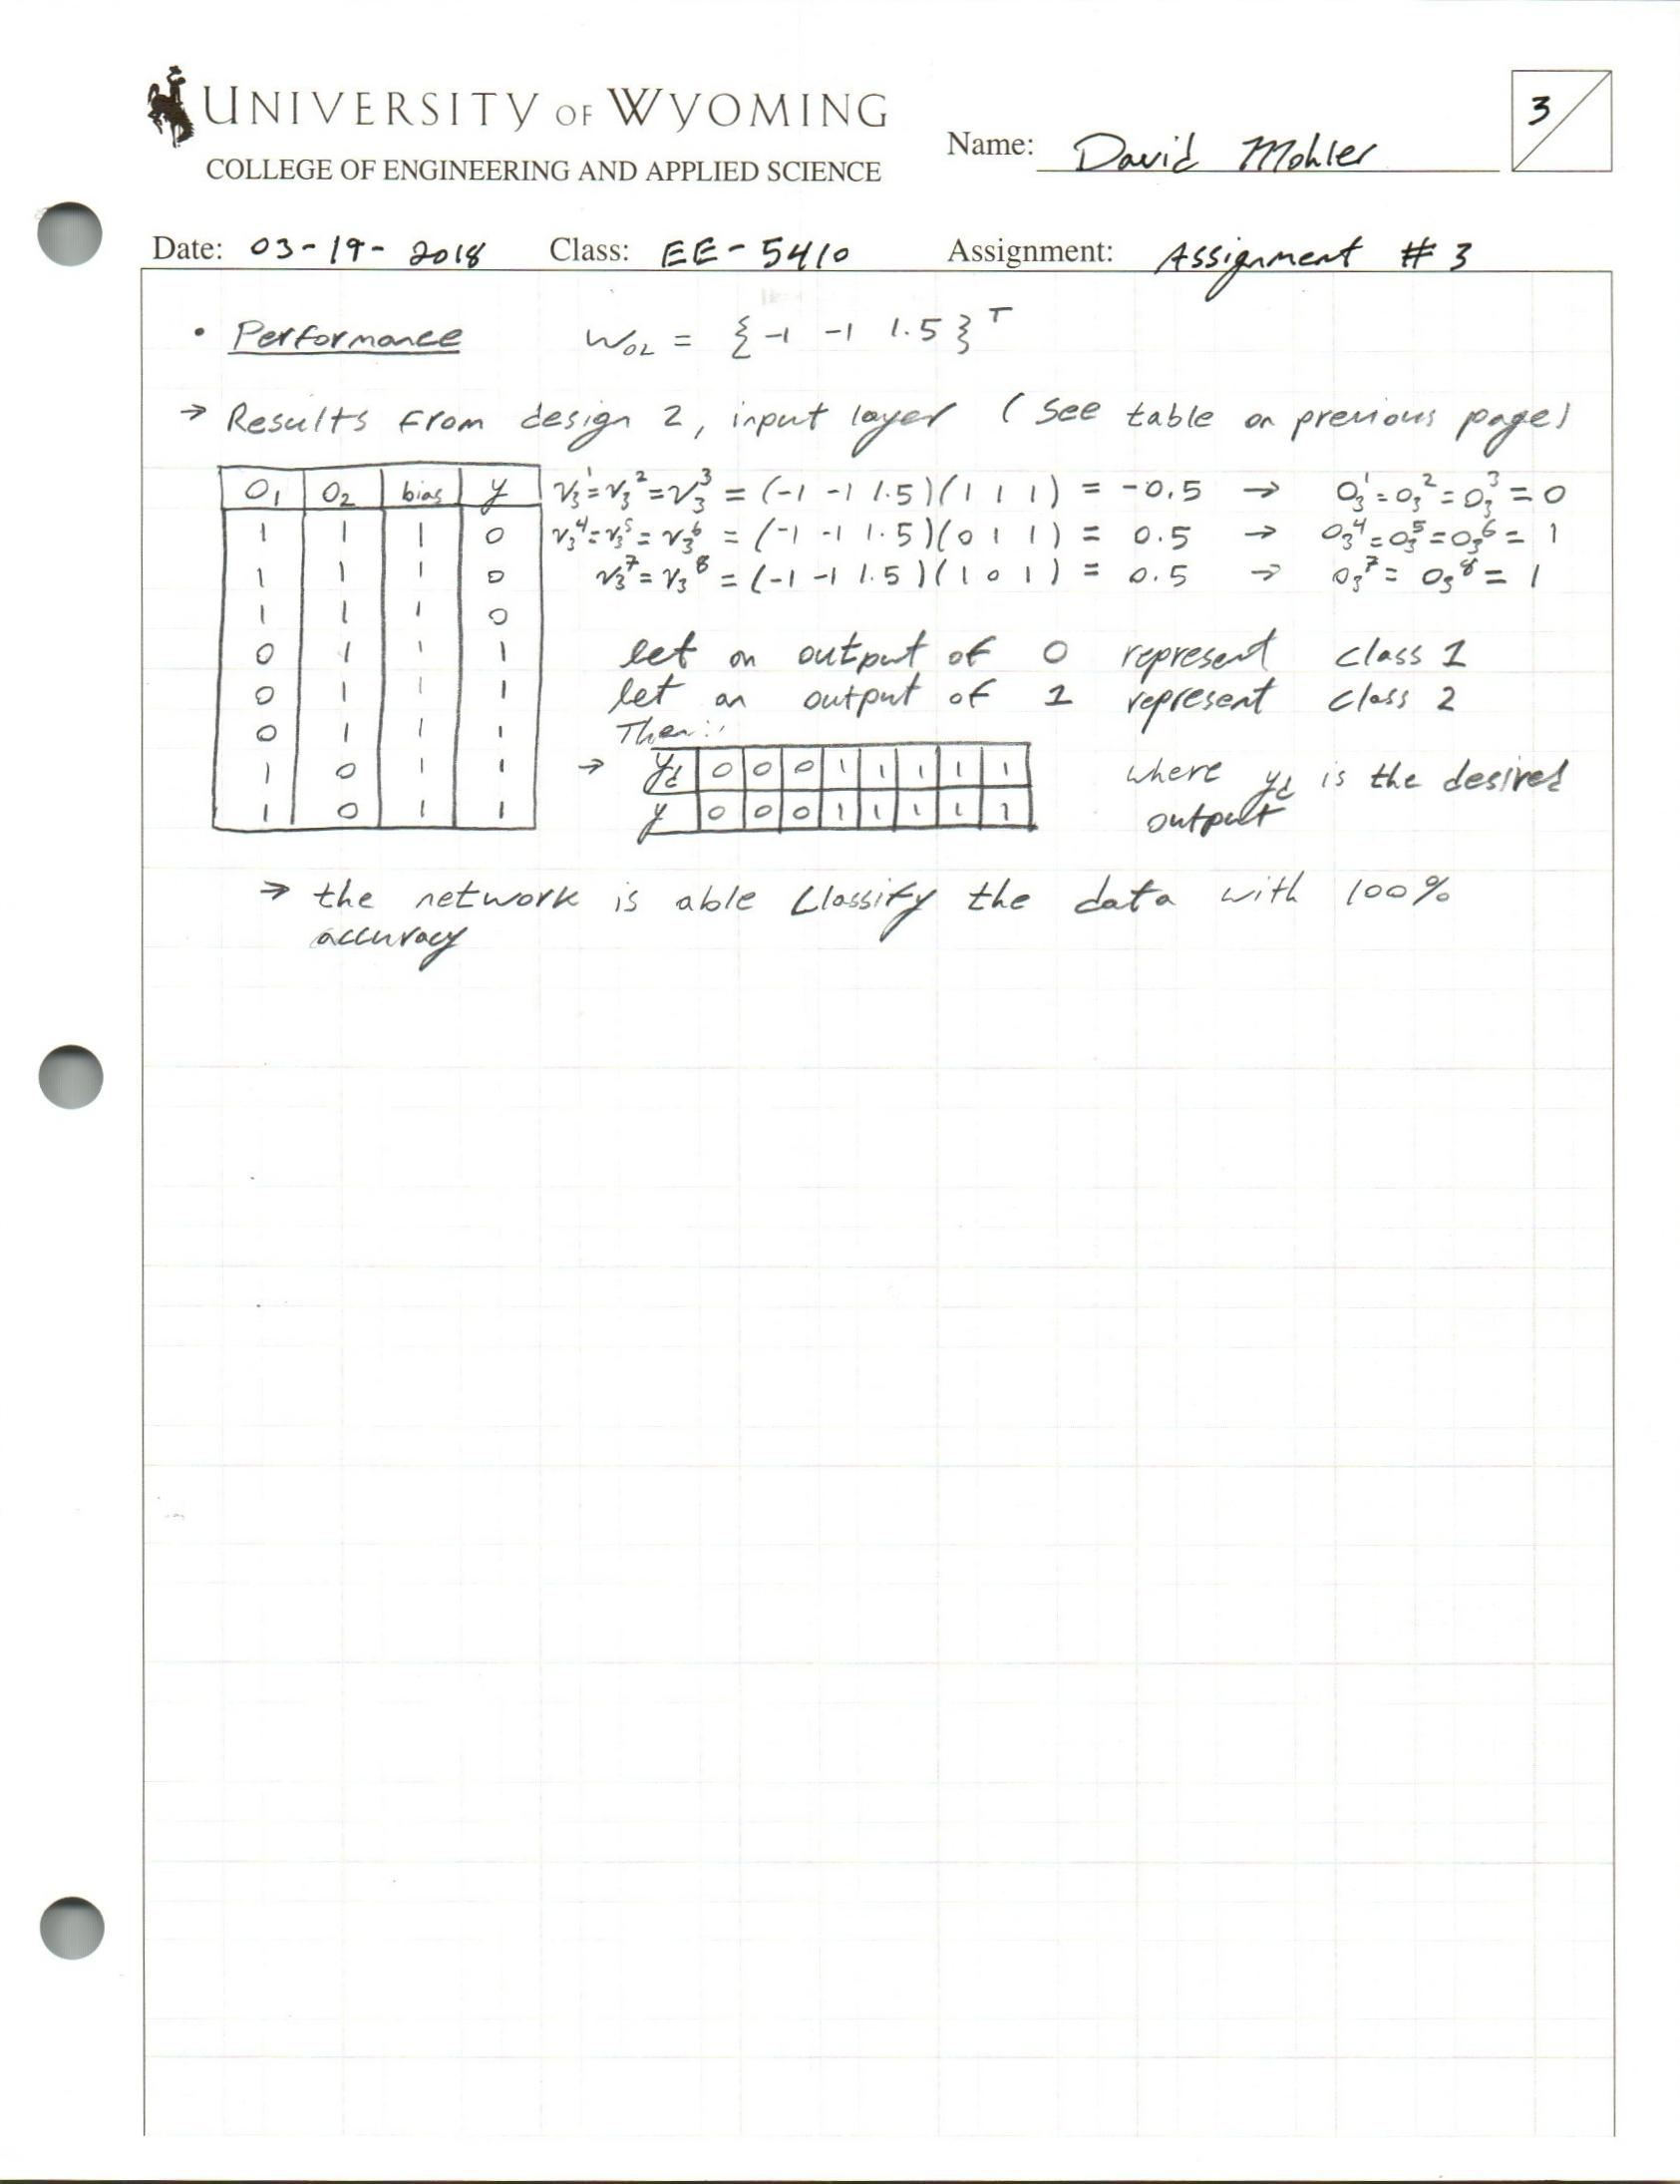 UNIVERSITY OF WYOMING
COLLEGE OF ENGINEERING AND APPLIED SCIENCE
Name: David Mohler
3
Date: 03-19-2018 Class: EE-5410 Assignment: Assignment #3
• Performance W_OL = {-1 -1 1.5}^T
→ Results from design 2, input layer (see table on previous page)
O₁ O₂ bias y
1 1 1 0
1 1 1 0
1 1 1 0
0 1 1 1
0 1 1 1
0 1 1 1
1 0 1 1
1 0 1 1
v₃¹=v₃²=v₃³ = (-1 -1 1.5)(1 1 1) = -0.5 → O₃¹=O₃²=O₃³=0
v₃⁴=v₃⁵=v₃⁶ = (-1 -1 1.5)(0 1 1) = 0.5 → O₃⁴=O₃⁵=O₃⁶=1
v₃⁷=v₃⁸ = (-1 -1 1.5)(1 0 1) = 0.5 → O₃⁷=O₃⁸=1
let an output of 0 represent class 1
let an output of 1 represent class 2
Then:
→ y_d 0 0 0 1 1 1 1 1
y 0 0 0 1 1 1 1 1
where y_d is the desired
output
→ the network is able classify the data with 100%
accuracy